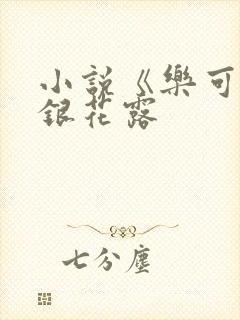 小説《樂可
銀花露
七分塵